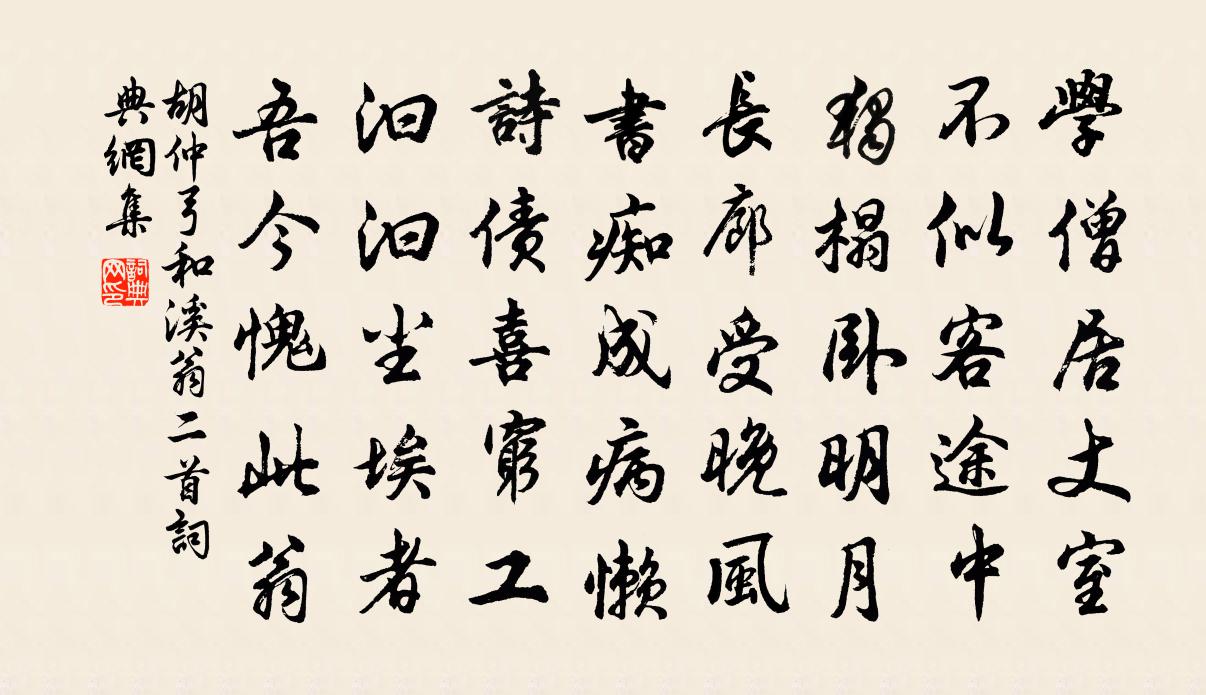 學僧居丈室
不似客途中
獨榻臥明月
長廊受晚風
書痴成病懶
詩債喜窮工
汩汩坐埃者
吾今愧此翁
胡仲弓和溪翁二首詞
典網集
詞典
网印